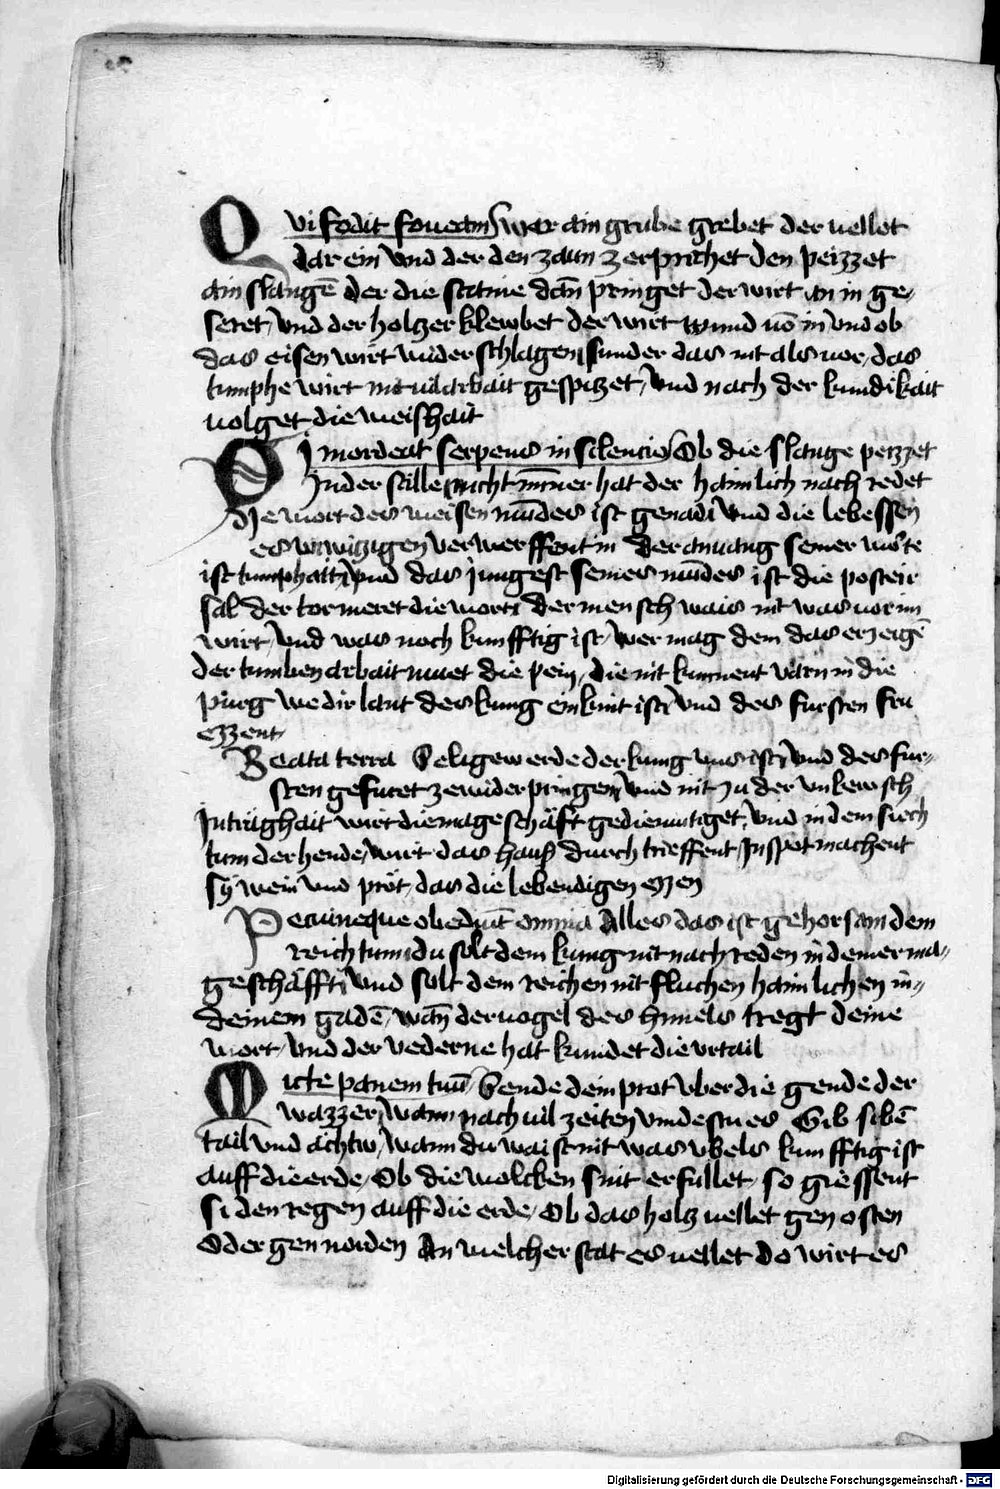 Qvi fodit foueam Swer ain grube grebet der uellet
dar ein Vnd der den zaun zerprichet den peizzet
ain slangē der die staine dan̄ pringet der wirt an in ge⸗
seret Vnd der holtzer klewbet der wirt wund uō in Vnd ob
das eisen wirt wider schlagen sunder das nit als uor das
tumphe wirt mit uil arbait gespitzet Vnd nach der kundikait
uolget die weishait
Si mordeat serpens in silencio Ob die slange peizzet
In der stille nicht mīner hat der haimlich nach redet
Die wort des weisen mūdes ist genad Vnd die lebessen
es vnwiczigen verwerffent in Der anuang seiner worte
ist tumphait Vnd das jungest seines mūdes ist die posteir
sal der tor meret die wort Der mensch wais nit was uor im
wirt Vnd was noch kunfftig ist wer mag dem das erzeigē
der tumben arbait muet die pein die nit kunnent varn in die
purg we dir lant des kung ein kint ist Vnd des fursten fru
ezzent
Beata terra Selige werde der kung uns ist Vnd des fur⸗
sten gefuret ze wider pringen Vnd nit zu der vnkewsch
In traghait wirt die mageschäft gediemutiget Vnd in dem siech
tum der hende wirt das haus durch trieffent In spot machent
sy wein Vnd prot das die lebendigen ezzen
Pecunieque obediūt omnia Alles das ist gehorsam dem
reichtum du solt dem kung nit nach reden in deiner ma⸗
geschäfft Vnd solt dem reichen nit fluchen haimlichen in⸗
deinem gadē wan̄ der uogel des himels tregt deine
wort Vnd der vederne hat kundet die vrtail
Micte panem tuū Sende dein prot vber die gende der
wazzer wann nach uil zeiten vindestu es Gib sibē
tail Vnd achtw wann du waist nit was vbels kunfftig ist
auff die erde Ob die wolcken sint erfullet so giessent
si den regen auff die erde Ob das holz uellet gen osten
Oder gen norden An welcher stat es uellet do wirt es
Digitalisierung gefördert durch die Deutsche Forschungsgemeinschaft - DFG